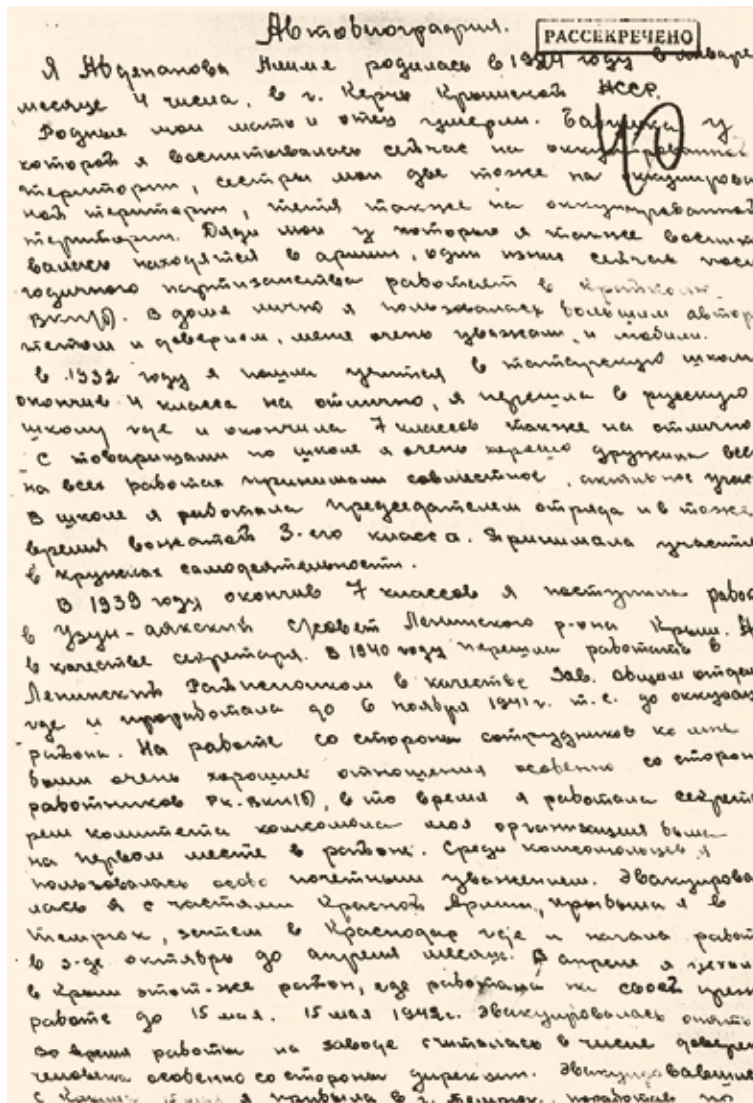 Автобиография.
РАССЕКРЕЧЕНО
Я Абденанова Алиме родилась в 1924 году в январе
месяце 4 числа, в г. Керчь Крымской АССР.
Родные мои мать и отец умерли. Бабушка у
которой я воспитывалась сейчас на оккупированной
територии, сестры мои две тоже на оккупирова
ной територии, тетя также на оккупированной
територии. Дяди мои у которых я также воспит
валась находятся в армии, один из них сейчас посл
годичного партизанства работает в
ВКП(б). В доме лично я пользовалась большим автор
тетом и доверием, меня очень уважали, и любили.
В 1932 году я пошла учится в татарскую школ
окончив 4 класса на отлично, я перешла в русскую
школу где и окончила 7 классов также на отлично
С товарищами по школе я очень хорошо дружила все
на всех работах принимали совместное, активное учас
В школе я работала председателем отряда и в тоже
время вожатой 3-его класса. Принимала участи
в кружках самодеятельности.
В 1939 году окончив 7 классов я поступила работ
в Узун-аякский с/совет Ленинского р-она Крым.
в качестве секретаря. В 1940 году перешла работать в
Ленинский Райисполком в качестве Зав. общим отдел
где и проработала до 6 ноября 1941 г. т.е. до оккупац
района. На работе со стороны сотрудников ко мне
были очень хорошие отношения особенно со сторон
работников Рк-ВКП(б), в то время я работала секрет
рем комитета комсомола моя организация была
на первом месте в районе. Среди комсомольцев я
пользовалась особо почетным уважением. Эвакуирова
лась я с частями Красной Армии, прибыла я в
Темрюк, затем в Краснодар где и начала работ
в з-де октябрь до апреля месяца. В апреле я
в Крым этот-же район, где работала на своей преж
работе до 15 мая. 15 мая 1942 г. Эвакуировалась опять
во время работы на заводе считалась в числе доверен
человека особенно со стороны дирекции. Эвакуировавшись
с Крыма я прибыла в г. Темрюк, поработав по